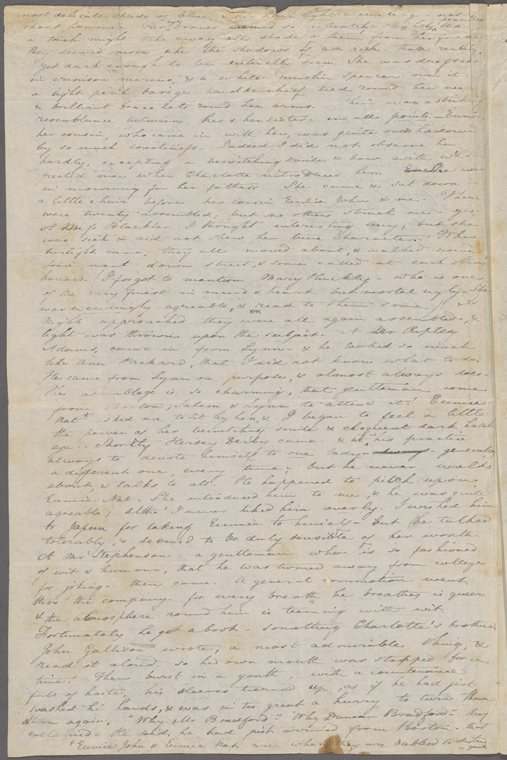 most delicate shade of
a touch might take away all shade of them from her
They seemed more like the shadows of an than reality,
yet dark enough to be distinctly seen. She was dressed
in crimson merino, & a white muslin spencer over it
a light barège handkerchief tied round her neck
& brilliant bracelets round her arms. There was a striking
resemblance between her & her sister in all points. Eunice
her cousin, who came in with her, was quite overshadowed
by so much loveliness. Indeed I did not observe her
hardly, excepting a bewitching smile & bow with wh she
greeted me when Charlotte introduced her. was
in mourning for her father. She came & sat down
a little chair before her cousin Eunice John & me. There
were twenty assembled; but no others struck me
of Miss Blackler I thought interesting , but she
was sick & did not show her true character. When
twilight came, they all moved about, & walked
and down street, & some called at each others
houses. I forgot to mention Mary Hinckley who is one
of the very finest in mind & heart but mortal ugly. She
was exceedingly agreeable, & read to them some. As
Night approached they were all again assembled, &
light was thrown upon the subject. A Mr Ripley
Adams, came in from Lynn & he looked so much
like Ann Pickard, that I did not know what to do.
He came from Lynn on purpose, & almost always does.
The assemblage is so charming, that gentlemen come
from Boston, Salem & Lynn to attend it! Eunice
Nat asked me to sit by her, & I began to feel a little
the power of her bewitching smile & eloquent dark hazel
eye. Shortly Hersey Derby came & as his practice
always to devote himself to one lady generally
a different one, every time; but he never walks
about & talks to all. He happened to pitch upon
Eunice Nat. She introduced him to me & he was quite
agreeable; altho' I never liked him overly. I wished him
to Japan for taking Eunice to himself but he talked
tolerably & seemed to be duly sensible of her worth.
A Mr Stephenson a gentleman who is so fashioned
of wit & humour, that he was turned away from college
for joking there came. A general commotion went
thro' the company for every breath he breathes is queer
& the atmosphere round him is teeming with wit.
Fortunately he got a book something Charlotte's brother
John Gallison wrote, a most admirable thing, &
read it aloud so his own mouth was stopped for a
time. There burst in a youth, with a countenance
full of haste, his sleeves turned up, as if he had just
washed his hands, & was in too great a hurry to turn them
down again. "Why Mr Bradford" "Why Duncan Bradford" they
exclaimed. He said he had just arrived from Boston, they
Eunice John & Eunice Nat, are what they are called to